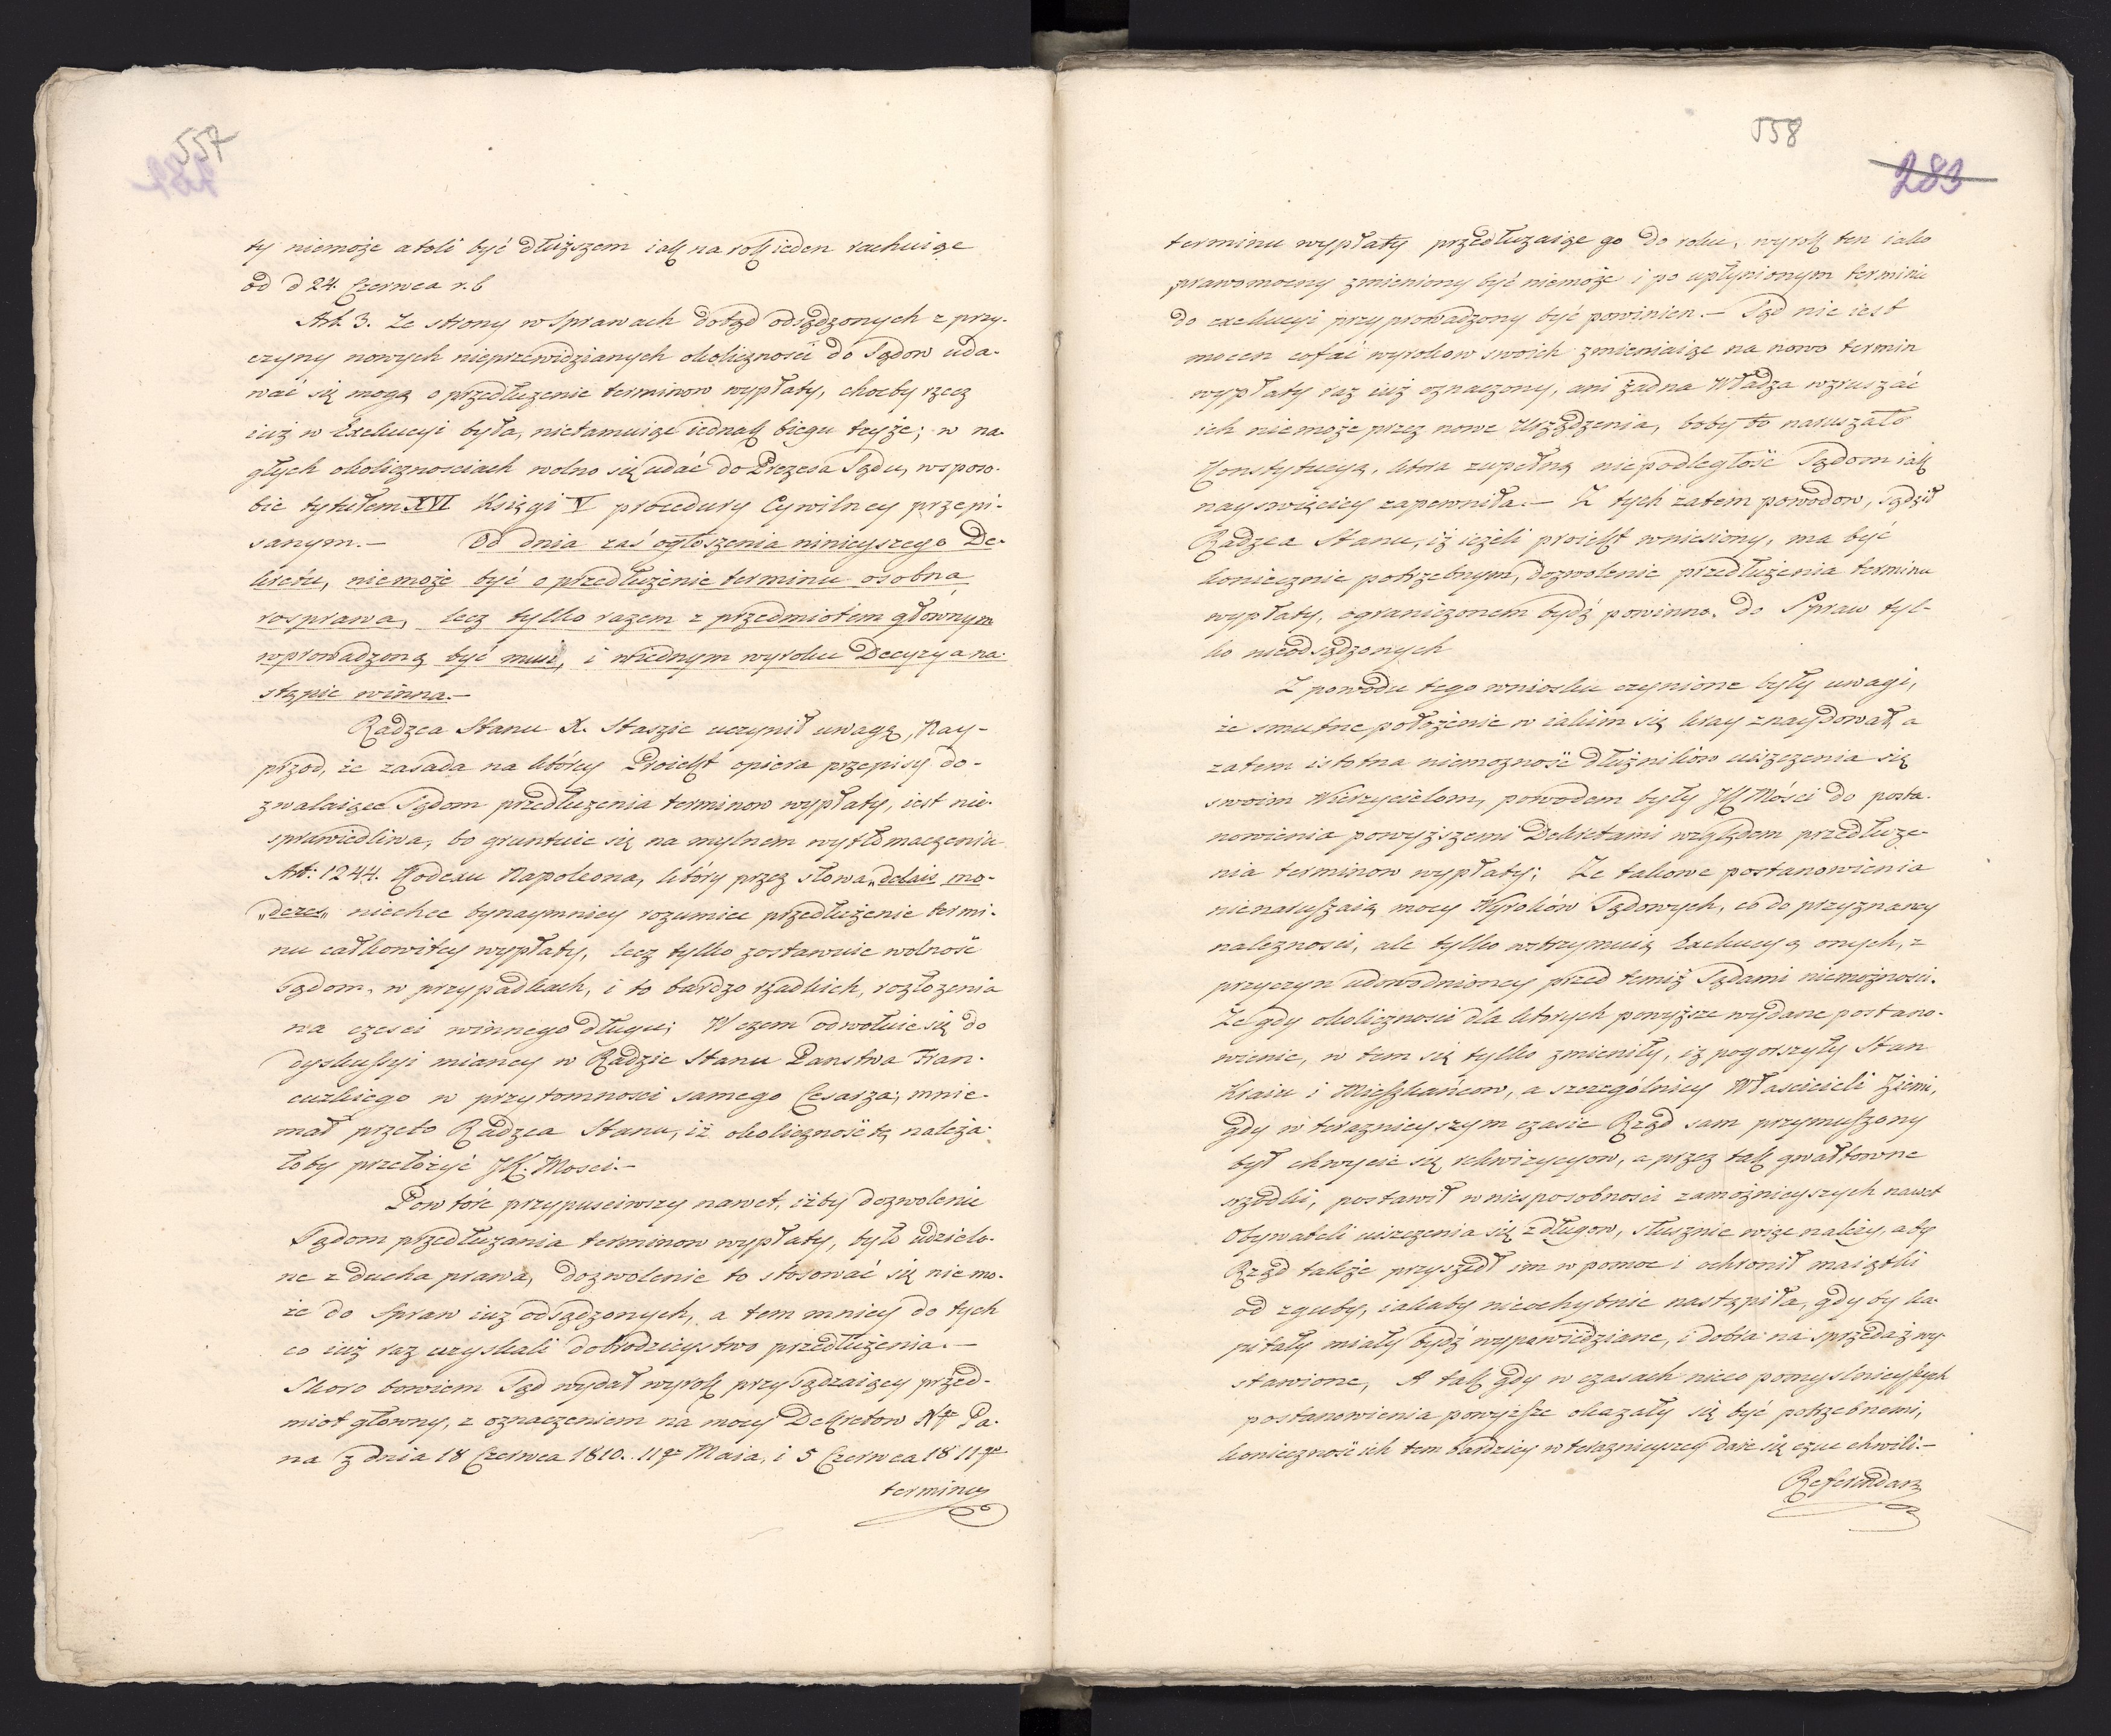 557
ty niemoże atoli być dłuższem iak na rok ieden rachuiąc
od d 24. Czerwca r. b
Art. 3. Ze strony w Sprawach dotąd odsądzonych z przy-
czyny nowych nieprzewidzianych okoliczności do Sądow uda-
wać się mogą o przedłużenie terminow wypłaty, choćby rzecz
iuż w Exekucyi była, nietamuiąc iednak biegu teyże; w na-
głych okolicznościach wolno się udać do Prezesa Sądu, w sposo-
bie tytułem XVI Księgi V procedury Cywilney przepi-
sanym.— Od dnia zaś ogłoszenia ninieyszego De-
kretu, niemoże być o przedłużenie terminu osobna
rosprawa, lecz tylko razem z przedmiotem głownym
wprowadzoną być musi, i wiednym wyroku Decyzya na-
stąpic winna.—
Radzca Stanu X. Staszic uczynił uwagę, Nay-
przod, że zasada na ktorey Proiekt opiera przepisy do-
zwalaiące Sądom przedłużenia terminow wypłaty, iest nie-
sprawiedliwa, bo gruntuie się na mylnem wytłomaczeniu
Art: 1244. Kodexu Napoleona, który przez słowa „delais mo-
„deres„ niechce bynaymniey rozumieć przedłużenie termi-
nu całkowitey wypłaty, lecz tylko zostawuie wolność
Sądom, w przypadkach, i to bardzo rzadkich, rozłożenia
na części winnego Długu; W czem odwołuie się do
dyskussyi mianey w Radzie Stanu Panstwa Fran-
cuzkiego w przytomnosci samego Cesarza; mnie-
mał przeto Radzca Stanu, iż okoliczność tę należa-
łoby przełożyć JK. Mosci.—
Powtóre przypusciwszy nawet, iżby dozwolenie
Sądom przedłużania terminow wypłaty, było udzielo-
ne z ducha prawa, dozwolenie to stosować się nie mo-
że do Spraw iuż odsądzonych, a tem mniey do tych
co iuż raz uzyskali dobrodzieystwo przedłużenia.—
Skoro bowiem Sąd wydał wyrok przysądzaiący przed-
miot głowny, z oznaczeniem na mocy Dekretow Ngo Pa-
na z dnia 18 Czerwca 1810. 11go Maia, i 5 Czerwca 1811go
terminu
558
283
terminu wypłaty przedłużaiąc go do roku, wyrok ten iako
prawomocny zmieniony być niemoże i po upłynionym terminie
do exekucyi przyprowadzony być powinien.— Sąd nie iest
mocen cofać wyrokow swoich zmieniaiąc na nowo termin
wypłaty raz iuż oznaczony, ani żadna Władza wzruszać
ich niemoże przez nowe Urządzenia, boby to naruszało
Konstytucyą, ktora zupełną niepodległość Sądom iak
nayswięciey zapewniła.— Z tych zatem powodow, sądził
Radzca Stanu, iż ieżeli proiekt wniesiony, ma być
koniecznie potrzebnym, dozwolenie przedłużenia terminu
wypłaty, ograniczonem bydź powinno, do Spraw tyl-
ko nieodsądzonych
Z powodu tego wniosku czynione były uwagi,
że smutne położenie w iakim się kray znaydował, a
zatem istotna niemozność Dłużników uiszczenia się
swoim Wierzycielom, powodem były JK Mości do posta-
nowienia powyższemi Dekretami względem przedłuże-
nia terminow wypłaty; Że takowe postanowienia
nienaruszaią mocy Wyroków Sądowych, co do przyznaney
należnosci, ale tylko wstrzymuią Exekucyą onych, z
przyczyn udowodnioney przed temiż Sądami niemożności.
Że gdy okoliczności dla ktorych powyższe wydane postano-
wienie, w tem się tylko zmieniły, iż pogorszyły Stan
Kraiu i Mieszkańcow, a szczególniey Właścicieli Ziemi,
gdy w teraznieyszym czasie Rząd sam przymuszony
był chwycić się rekwizycyow, a przez tak gwałtowne
srzodki, postawił w niesposobnosci zamożnieyszych nawet
Obywateli uiszczenia się z długow, słusznie więc należy, aby
Rząd także przyszedł im w pomoc i ochronił maiątki
od zguby, iakaby nieochybnie nastąpiła, gdyby ka-
pitały miały bydź wypowiedziane, i dobra na sprzedaż wy-
stawione, A tak gdy w czasach nieco pomyslnieyszych
postanowienia powyższe okazały się być potrzebnemi,
konieczność ich tem bardziey w teraznieyszey daie się czuc chwili.—
Referendarz